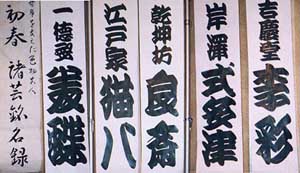 吉慶堂李彩
岸澤式多津
乾坤坊良斎
江戸家猫八
一徳斎美蝶
初春 諸芸銘名録